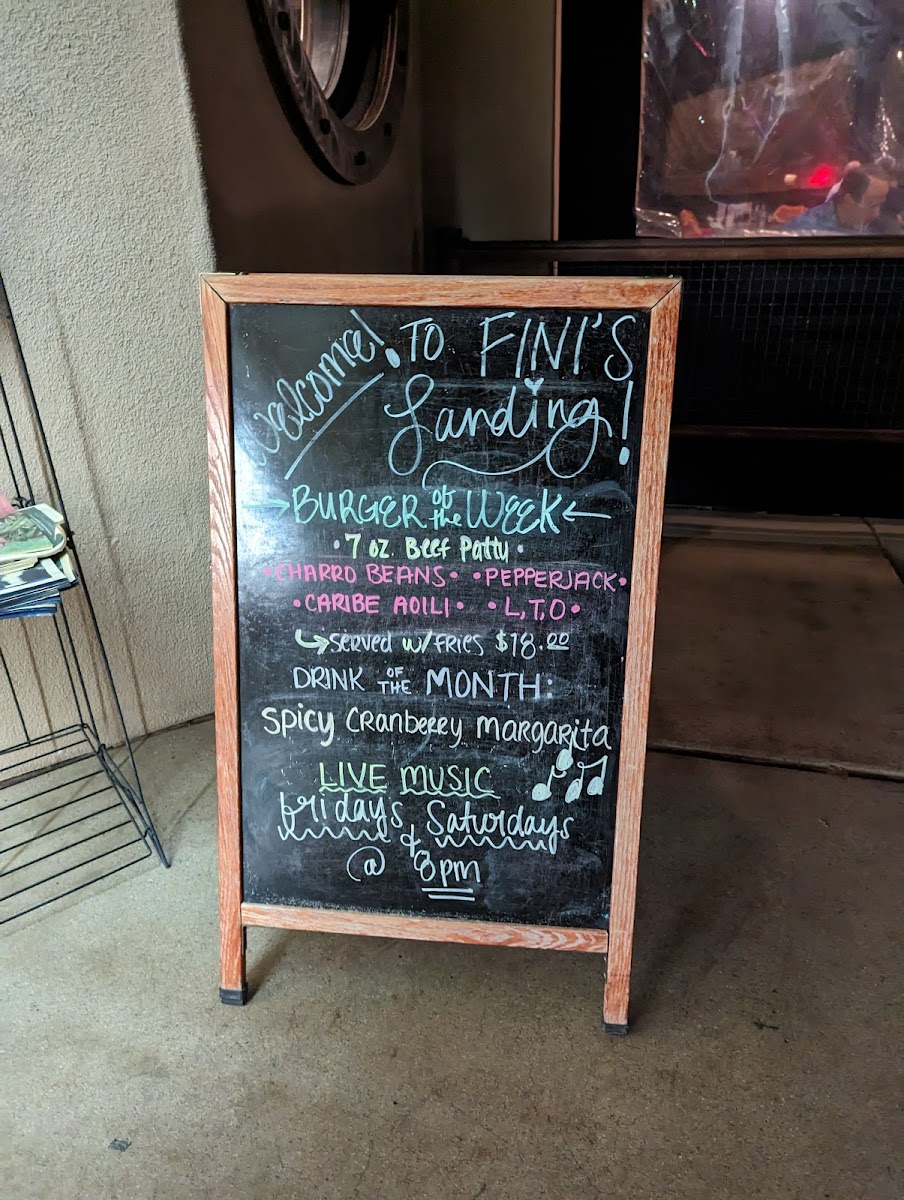 Welcome! TO FINI'S
Landing!
→BURGER of the WEEK←
• 7 oz. Beef Patty •
•CHARRO BEANS• •PEPPERJACK•
•CARIBE AOILI• •L,T,O•
↳SERVED W/FRIES $18.00
DRINK OF THE MONTH:
Spicy Cranberry Margarita
LIVE MUSIC
Fridays & Saturdays
@ 8pm